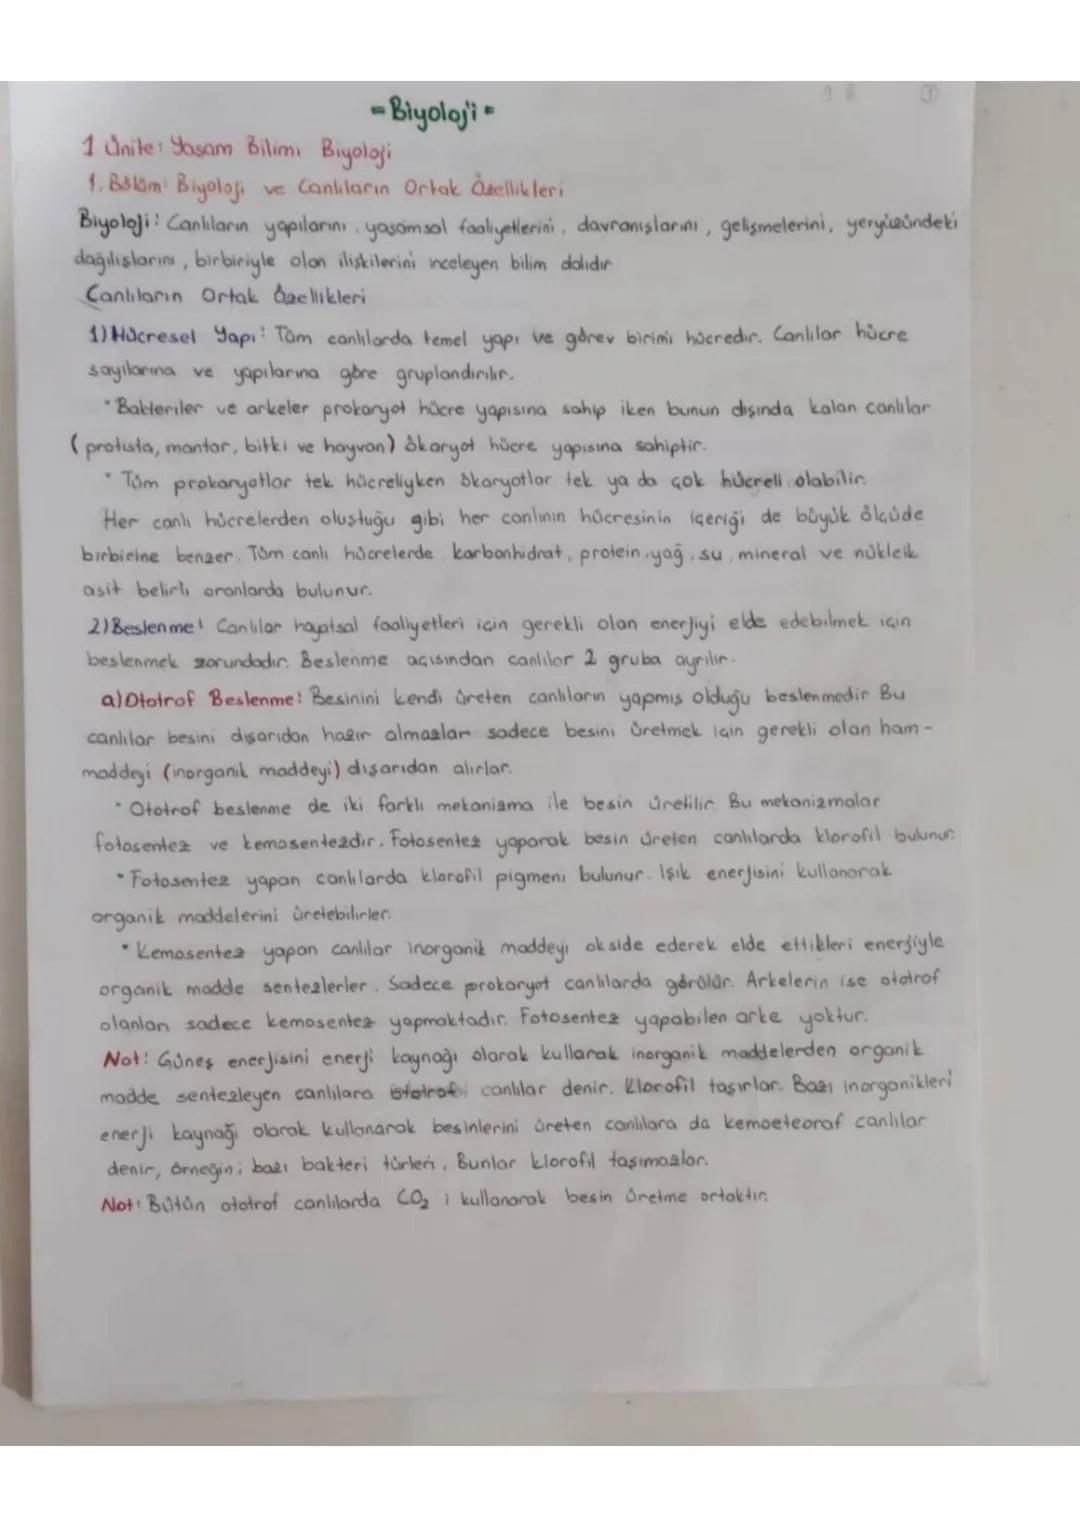 = Biyoloji =
1 Ünite: Yaşam Bilimi Biyoloji
1. Bölüm: Biyoloji ve Canlıların Ortak Özellikleri
Biyoloji: Canlıların yapılarını, yaşamsal faaliyetlerini, davranışlarını, gelişmelerini, yeryüzündeki
dağılışlarını, birbiriyle olan ilişkilerini inceleyen bilim dalıdır
Canlıların Ortak Özellikleri
1) Hücresel Yapı: Tüm canlılarda temel yapı ve görev birimi hücredir. Canlılar hücre
sayılarına ve yapılarına göre gruplandırılır.
* Bakteriler ve arkeler prokaryot hücre yapısına sahip iken bunun dışında kalan canlılar
(protista, mantar, bitki ve hayvan) ökaryot hücre yapısına sahiptir.
* Tüm prokaryotlar tek hücreliyken ökaryotlar tek ya da çok hücreli olabilir.
Her canlı hücrelerden oluştuğu gibi her canlının hücresinin içeriği de büyük ölçüde
birbirine benzer. Tüm canlı hücrelerde karbonhidrat, protein, yağ, su, mineral ve nükleik
asit belirli oranlarda bulunur.
2) Beslenme: Canlılar hayatsal faaliyetleri için gerekli olan enerjiyi elde edebilmek için
beslenmek zorundadır. Beslenme açısından canlılar 2 gruba ayrılır.
a) Ototrof Beslenme: Besinini kendi üreten canlıların yapmış olduğu beslenmedir Bu
canlılar besini dışarıdan hazır almazlar sadece besini üretmek için gerekli olan ham-
maddeyi (inorganik maddeyi) dışarıdan alırlar.
* Ototrof beslenme de iki farklı mekanizma ile besin üretilir. Bu mekanizmalar
fotosentez ve kemosentezdir. Fotosentez yaparak besin üreten canlılarda klorofil bulunur.
* Fotosentez yapan canlılarda klorofil pigmeni bulunur. Işık enerjisini kullanarak
organik maddelerini üretebilirler.
* Kemosentez yapan canlılar inorganik maddeyi okside ederek elde ettikleri enerjiyle
organik madde sentezlerler. Sadece prokaryot canlılarda görülür. Arkelerin ise ototrof
olanları sadece kemosentez yapmaktadır. Fotosentez yapabilen arke yoktur.
Not: Güneş enerjisini enerji kaynağı olarak kullarak inorganik maddelerden organik
madde sentezleyen canlılara ototrof canlılar denir. Klorofil taşırlar. Bazı inorganikleri
enerji kaynağı olarak kullanarak besinlerini üreten canlılara da kemoeteoraf canlılar
denir, örneğin; bazı bakteri türleri. Bunlar klorofil taşımazlar.
Not: Bütün ototrof canlılarda CO₂ i kullanarak besin üretme ortaktır.